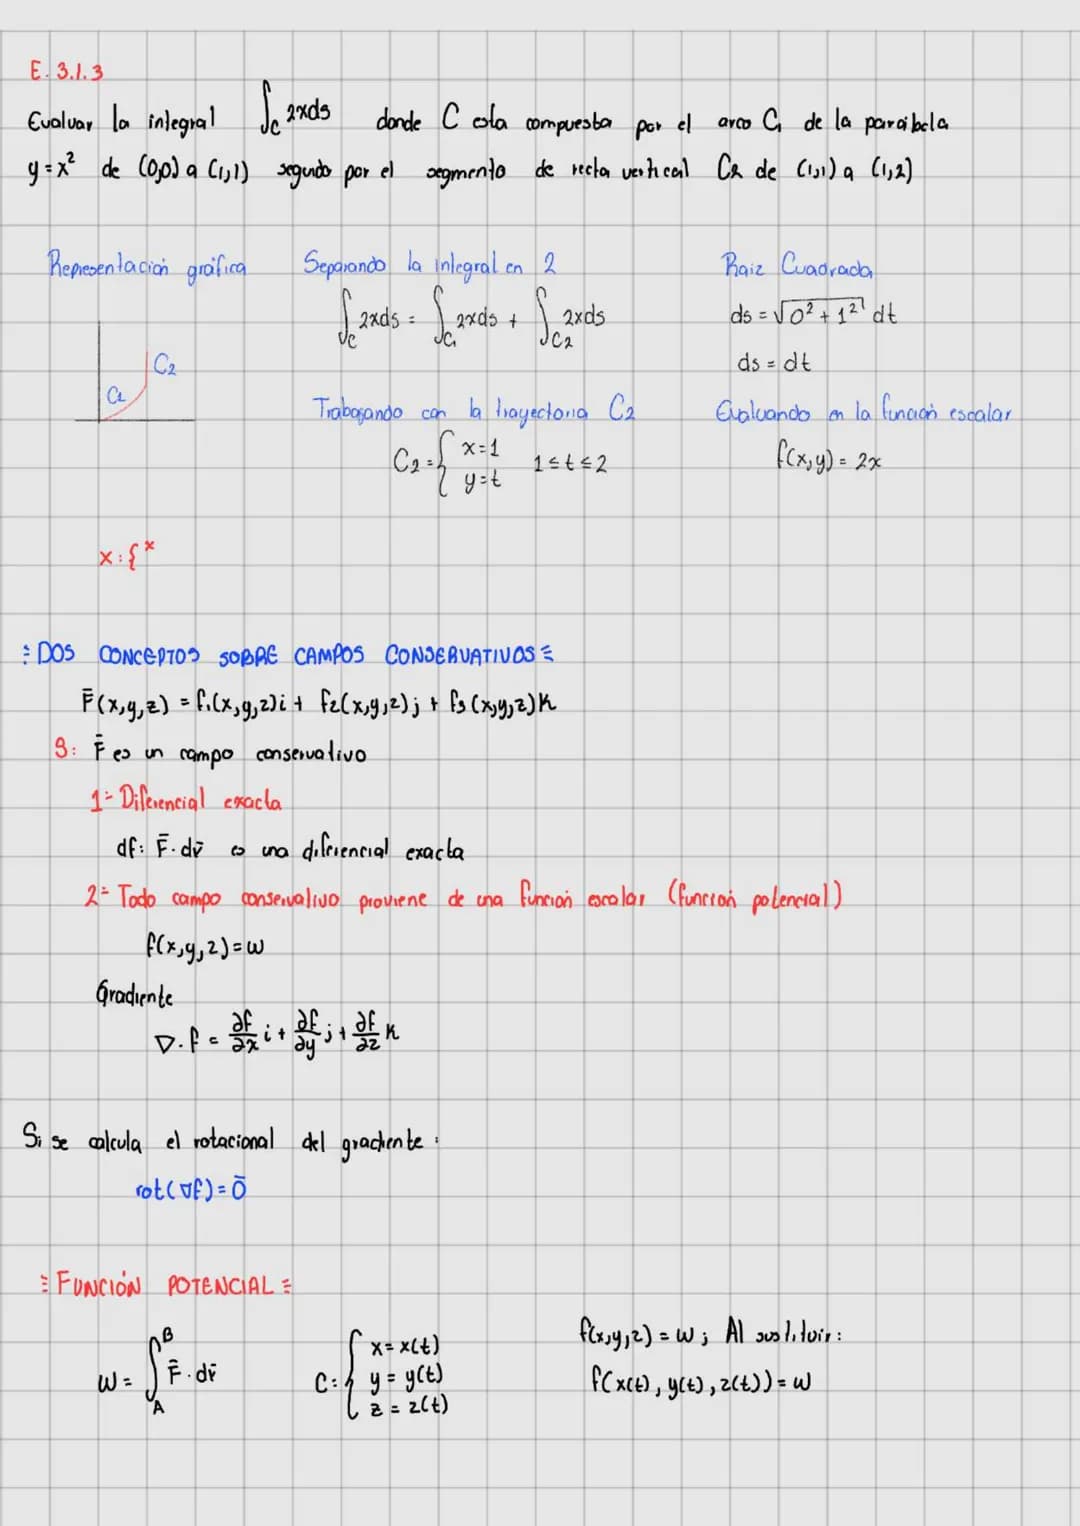 E. 3.1.3
Evaluar la integral ∫_C 2xds donde C esta compuesta por el arco C₁ de la parábola
y = x² de (0,0) a (1,1) seguido por el segmento de recta vertical C2 de (1,1) a (1,2)
Representación gráfica
C₂
C₁
Separando la integral en 2
∫_C 2xds = ∫_C₁ 2xds + ∫_C2 2xds
Trabajando con la trayectoria C2
C₂ = { x = 1
y = t
1 ≤ t ≤ 2
Raiz Cuadrada
ds = √0² + 1² dt
ds = dt
Evaluando en la función escalar
f(x,y) = 2x
x : { x
DOS CONCEPTOS SOBRE CAMPOS CONSERVATIVOS
F̄(x,y,z) = f₁(x,y,z)i + f2(x,y,z)j + f3(x,y,z)k
S: F̄ es un campo conservativo
1- Diferencial exacta
df: F̄·dr̄ es una diferencial exacta
2- Todo campo conservativo proviene de una función escalar (función potencial)
f(x,y,z) = w
Gradiente
∇·f = ∂f/∂x i + ∂f/∂y j + ∂f/∂z k
Si se calcula el rotacional del gradiente:
rot(∇f) = 0̄
FUNCIÓN POTENCIAL
w = ∫_A^B F̄·dr̄
C: { x = x(t)
y = y(t)
z = z(t)
f(x,y,z) = w; Al sustituir:
f(x(t), y(t), z(t)) = w